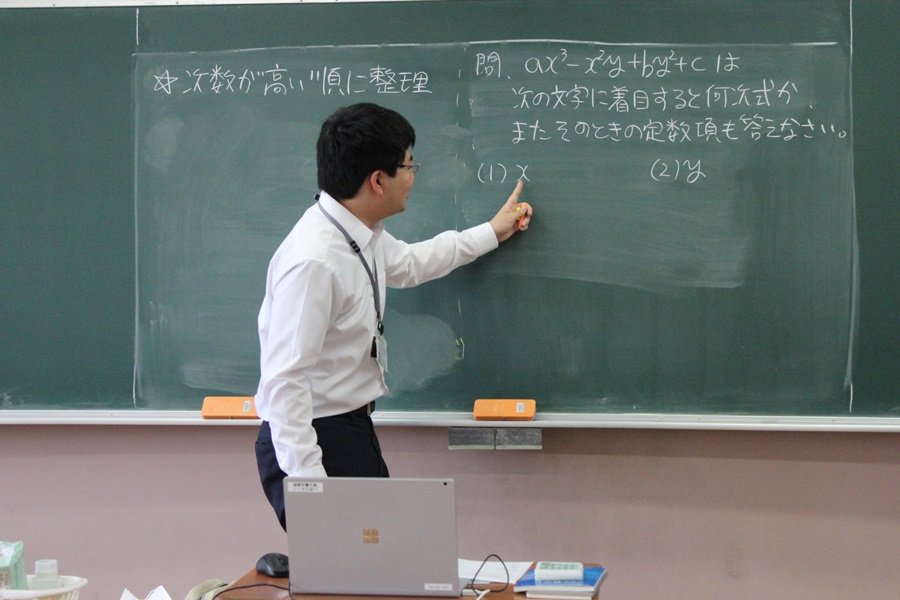 ☆次数が"高い"順に整理
問、ax³-x²y+by²+cは
次の文字に着目すると何次式か、
またそのときの定数項も答えなさい。
(1)x
(2)y